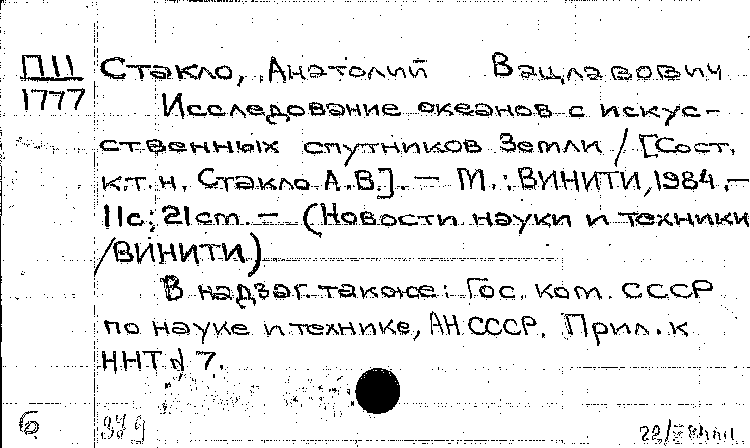 П11 Стэкло, Анатолий Вацлавович
1777 Исследование океанов с искус-
ственных спутников Земли / [Сост.
к.т.н. Стэкло А.В.]. — М.: ВИНИТИ, 1984.—
11с; 21см. — (Новости науки и техники
/ВИНИТИ)
В надзаг. также: Гос. ком. СССР
по науке и технике, АН СССР. Прил. к
ННТ № 7.
6